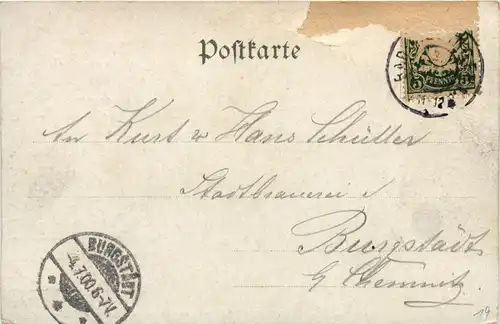 Postkarte
An Kurt u Hans Schüller
Stadtbrauerei
Burgstädt
b/ Chemnitz
BURGSTÄDT
4.7.00.6-7V.
19